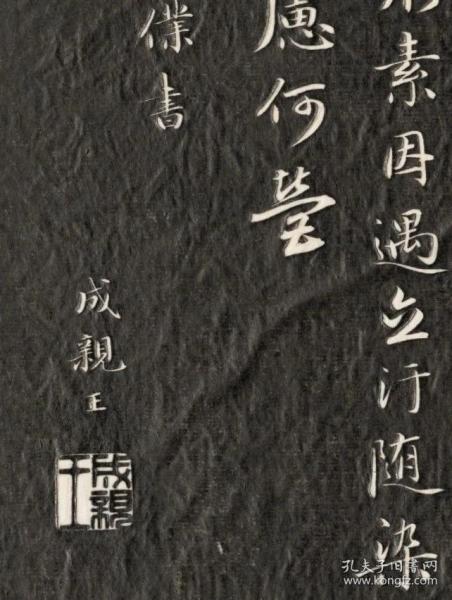 素因遇立汙随染
慮何營
僕書
成親王
成親王
孔夫子旧书网
www.kongfz.com